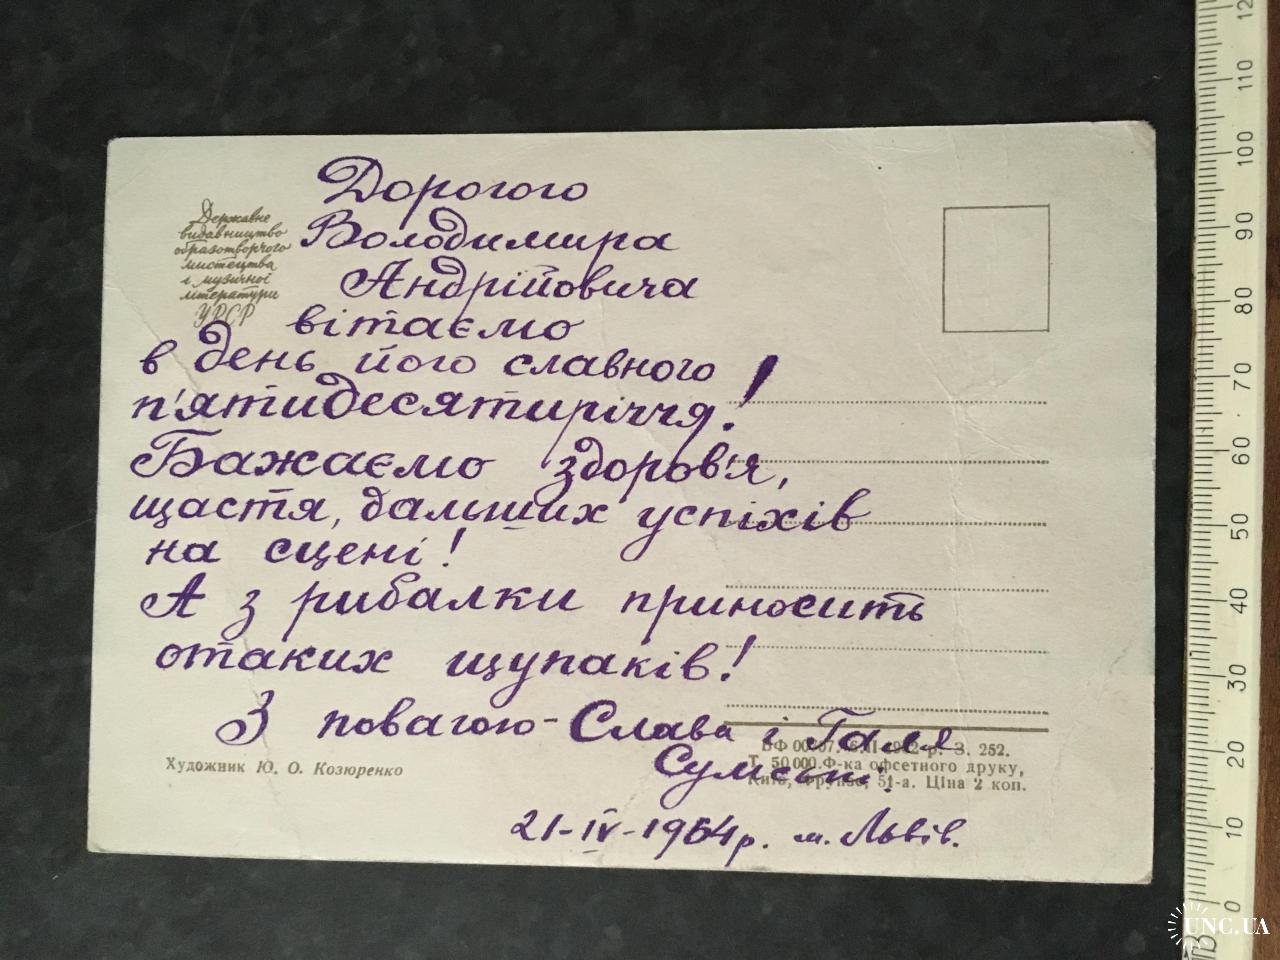 Державне
видавництво
образотворчого
мистецтва
і музичної
літератури
УРСР
Дорогого
Володимира
Андрійовича
вітаємо
в день його славного
п'ятидесятиріччя!
Бажаємо здоров'я,
щастя, дальших успіхів
на сцені!
А з рибалки приносить
отаких щупаків!
З повагою - Слава і Галя
Сумські.
21-IV-1964р. м. Львів.
Художник Ю. О. Козюренко
БФ р. З. 252.
Т. 50 000. Ф-ка офсетного друку,
Київ, Фрунзе, 51-а. Ціна 2 коп.
0 10 20 30 40 50 60 70 80 90 100 110
UNC.UA